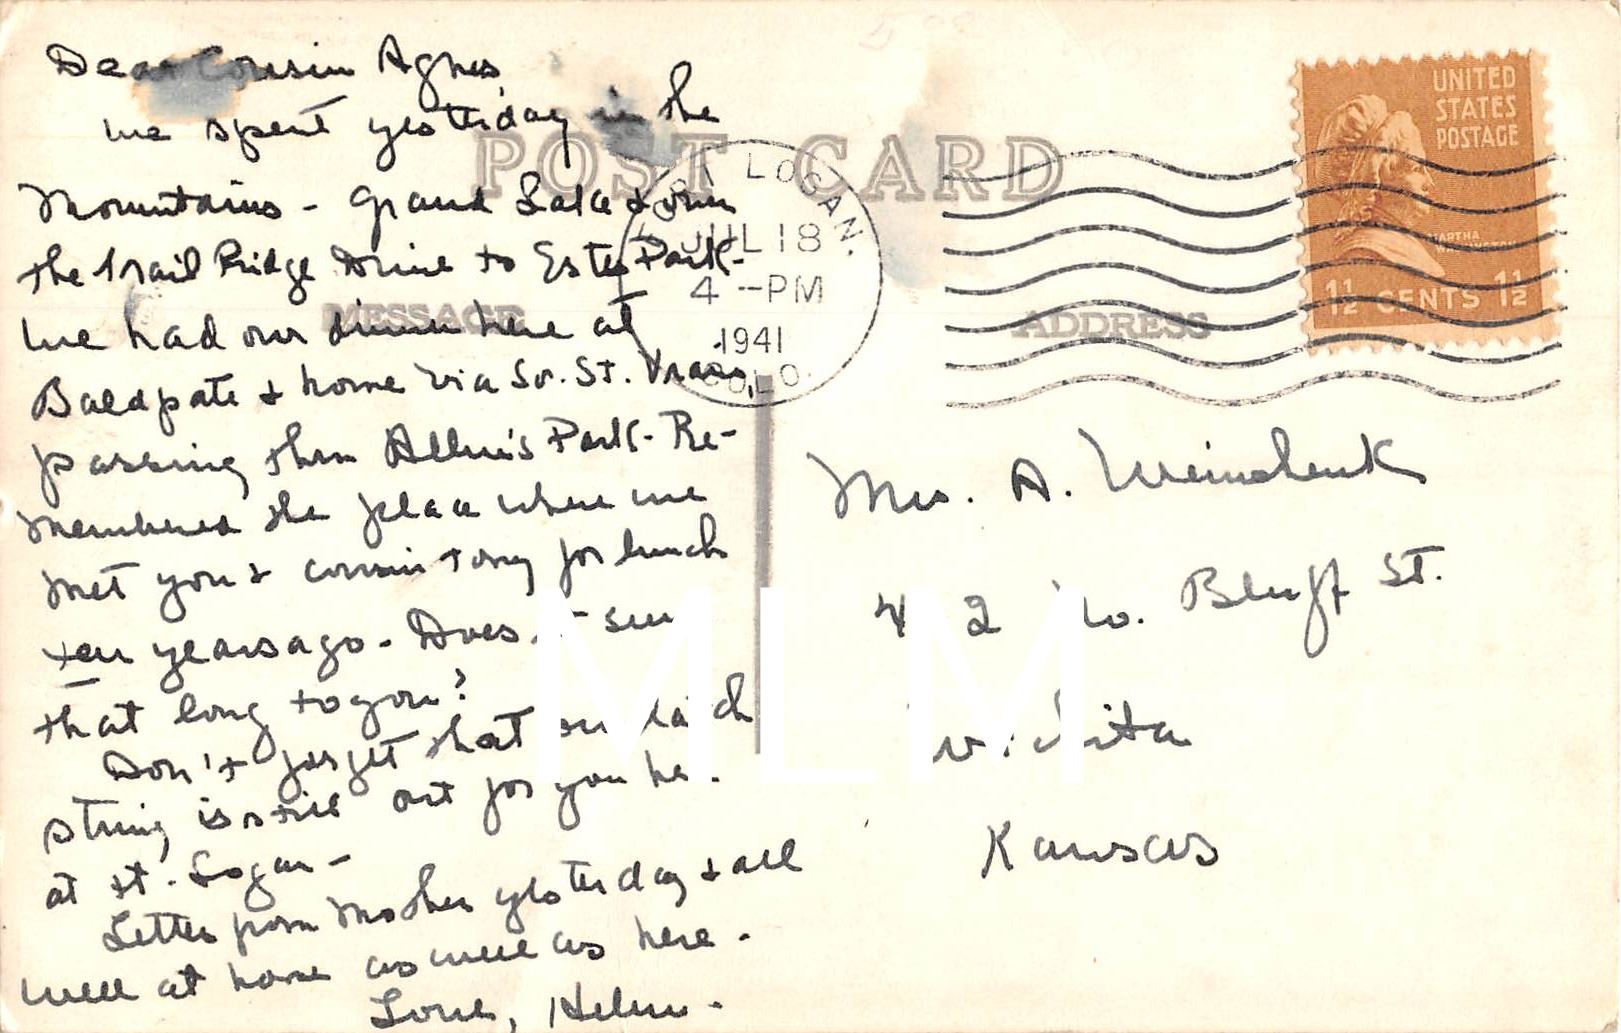 Dear Cousin Agnes
We spent yesterday in the
Mountains - Grand Lake & over
the Trail Ridge Drive to Estes Park -
We had our dinner here at
Baldpate & home via So. St. Vrain,
passing thru Allen's Park - Re-
membered the place where we
met you & cousin Tony for lunch
ten years ago - Does it seem
that long to you?
Don't forget that our latch
string is still out for you here
at Ft. Logan -
Letter from Mother yesterday & all
well at home as well as here -
Love, Helen -
POST CARD
MESSAGE
ADDRESS
FORT LOGAN,
JUL 18
4 - PM
1941
COLO.
UNITED
STATES
POSTAGE
MARTHA
WASHINGTON
1½ CENTS 1½
Mrs. A. Weinschenk
4 2 No. Bluff St.
Wichita
Kansas
MLM